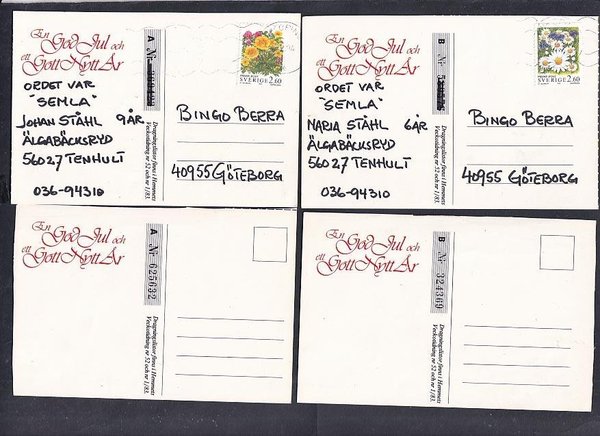 En
God Jul och
ett
Gott Nytt År
ORDET VAR
"SEMLA"
JOHAN STÅHL 9ÅR
ÄLGABÄCKSRYD
56027 TENHULT
036-94310
A
Nr
Dragningslistor finns i Hemmets
Veckotidning nr 52 och nr 1/83.
SVERIGE 2,60
BINGO BERRA
40955 GÖTEBORG
En
God Jul och
ett
Gott Nytt År
ORDET VAR
"SEMLA"
MARIA STÅHL 6ÅR
ÄLGABÄCKSRYD
56027 TENHULT
036-94310
B
Nr
Dragningslistor finns i Hemmets
Veckotidning nr 52 och nr 1/83.
SVERIGE 2,60
BINGO BERRA
40955 GÖTEBORG
En
God Jul och
ett
Gott Nytt År
A
Nr 625632
Dragningslistor finns i Hemmets
Veckotidning nr 52 och nr 1/83.
En
God Jul och
ett
Gott Nytt År
B
Nr 324369
Dragningslistor finns i Hemmets
Veckotidning nr 52 och nr 1/83.